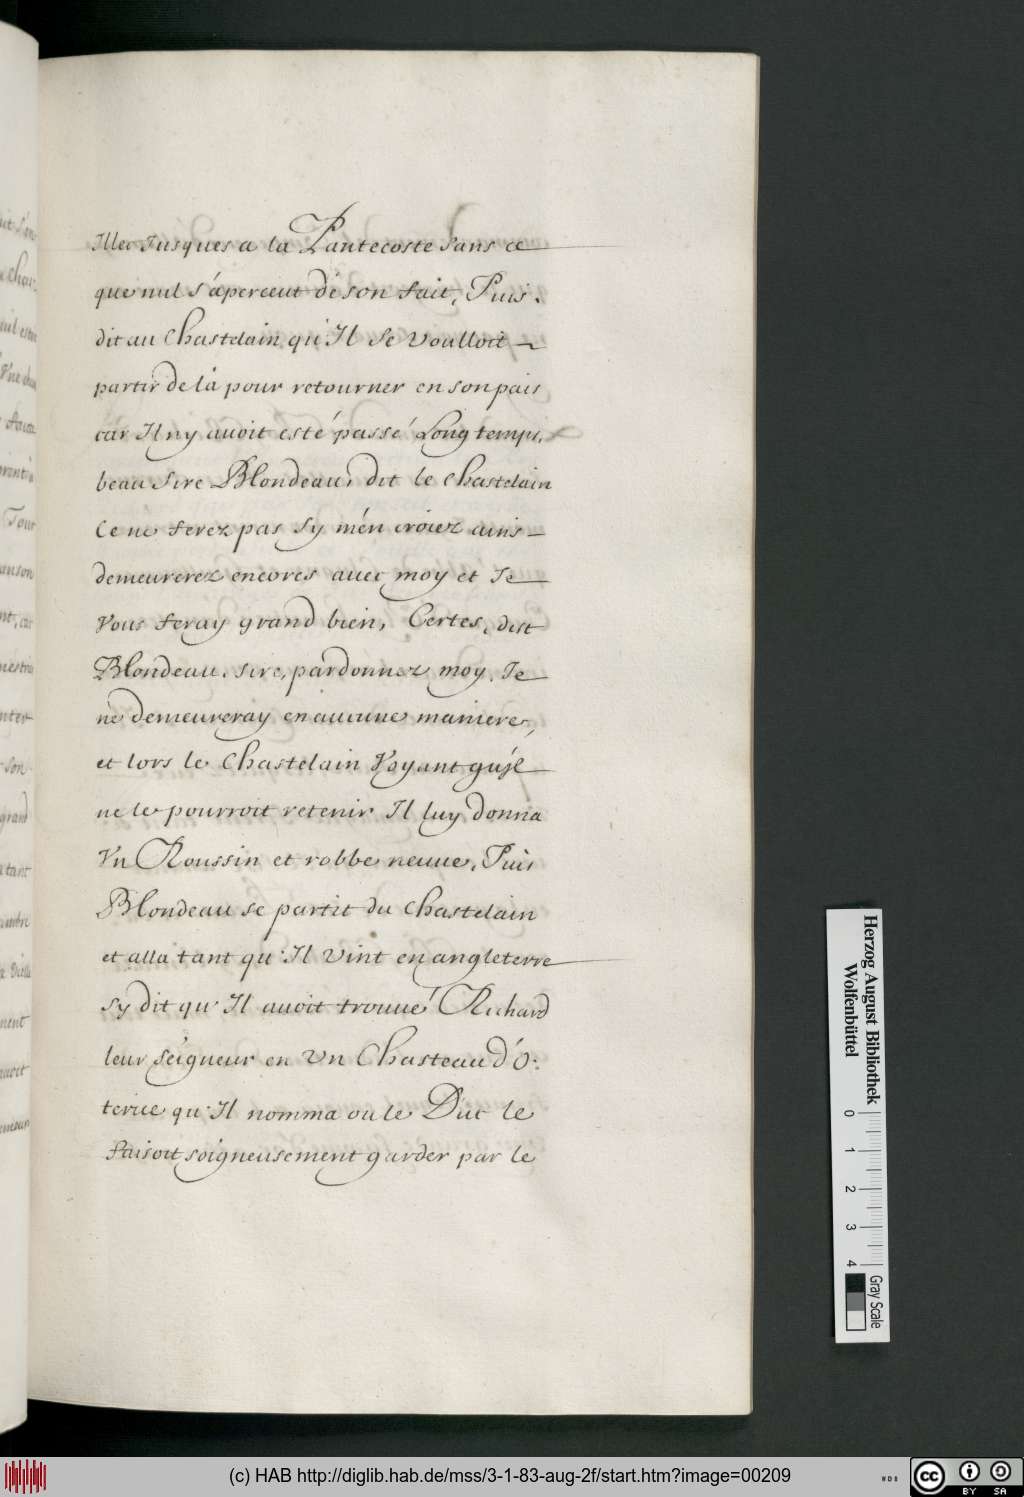 Illec Jusques a la Pantecoste sans ce
que nul s'aperceut de son fait, Puis
dit au Chastelain qu'Il se voulloit
partir de la pour retourner en son pais
car Il ny auoit esté passé Long temps,
beau Sire Blondeau, dit le Chastelain
Ce ne ferez pas sy m'en croiez ains
demeurerez encores auec moy et Je
Vous feray grand bien, Certes, dist
Blondeau, sire, pardonnez moy, Je
ne demeureray en aucune maniere,
et lors le Chastelain Voyant qu'jl
ne le pourroit retenir Il luy donna
Vn Roussin et robbe neuue, Puis
Blondeau se partit du Chastelain
et alla tant qu'Il vint en angleterre
sy dit qu'Il auoit trouué Richard
leur seigneur en vn Chasteau d'O:
terice qu'Il nomma ou le Duc le
faisoit soigneusement garder par le
Herzog August Bibliothek
Wolfenbüttel
0 1 2 3 4
Gray Scale
(c) HAB http://diglib.hab.de/mss/3-1-83-aug-2f/start.htm?image=00209
cc BY SA